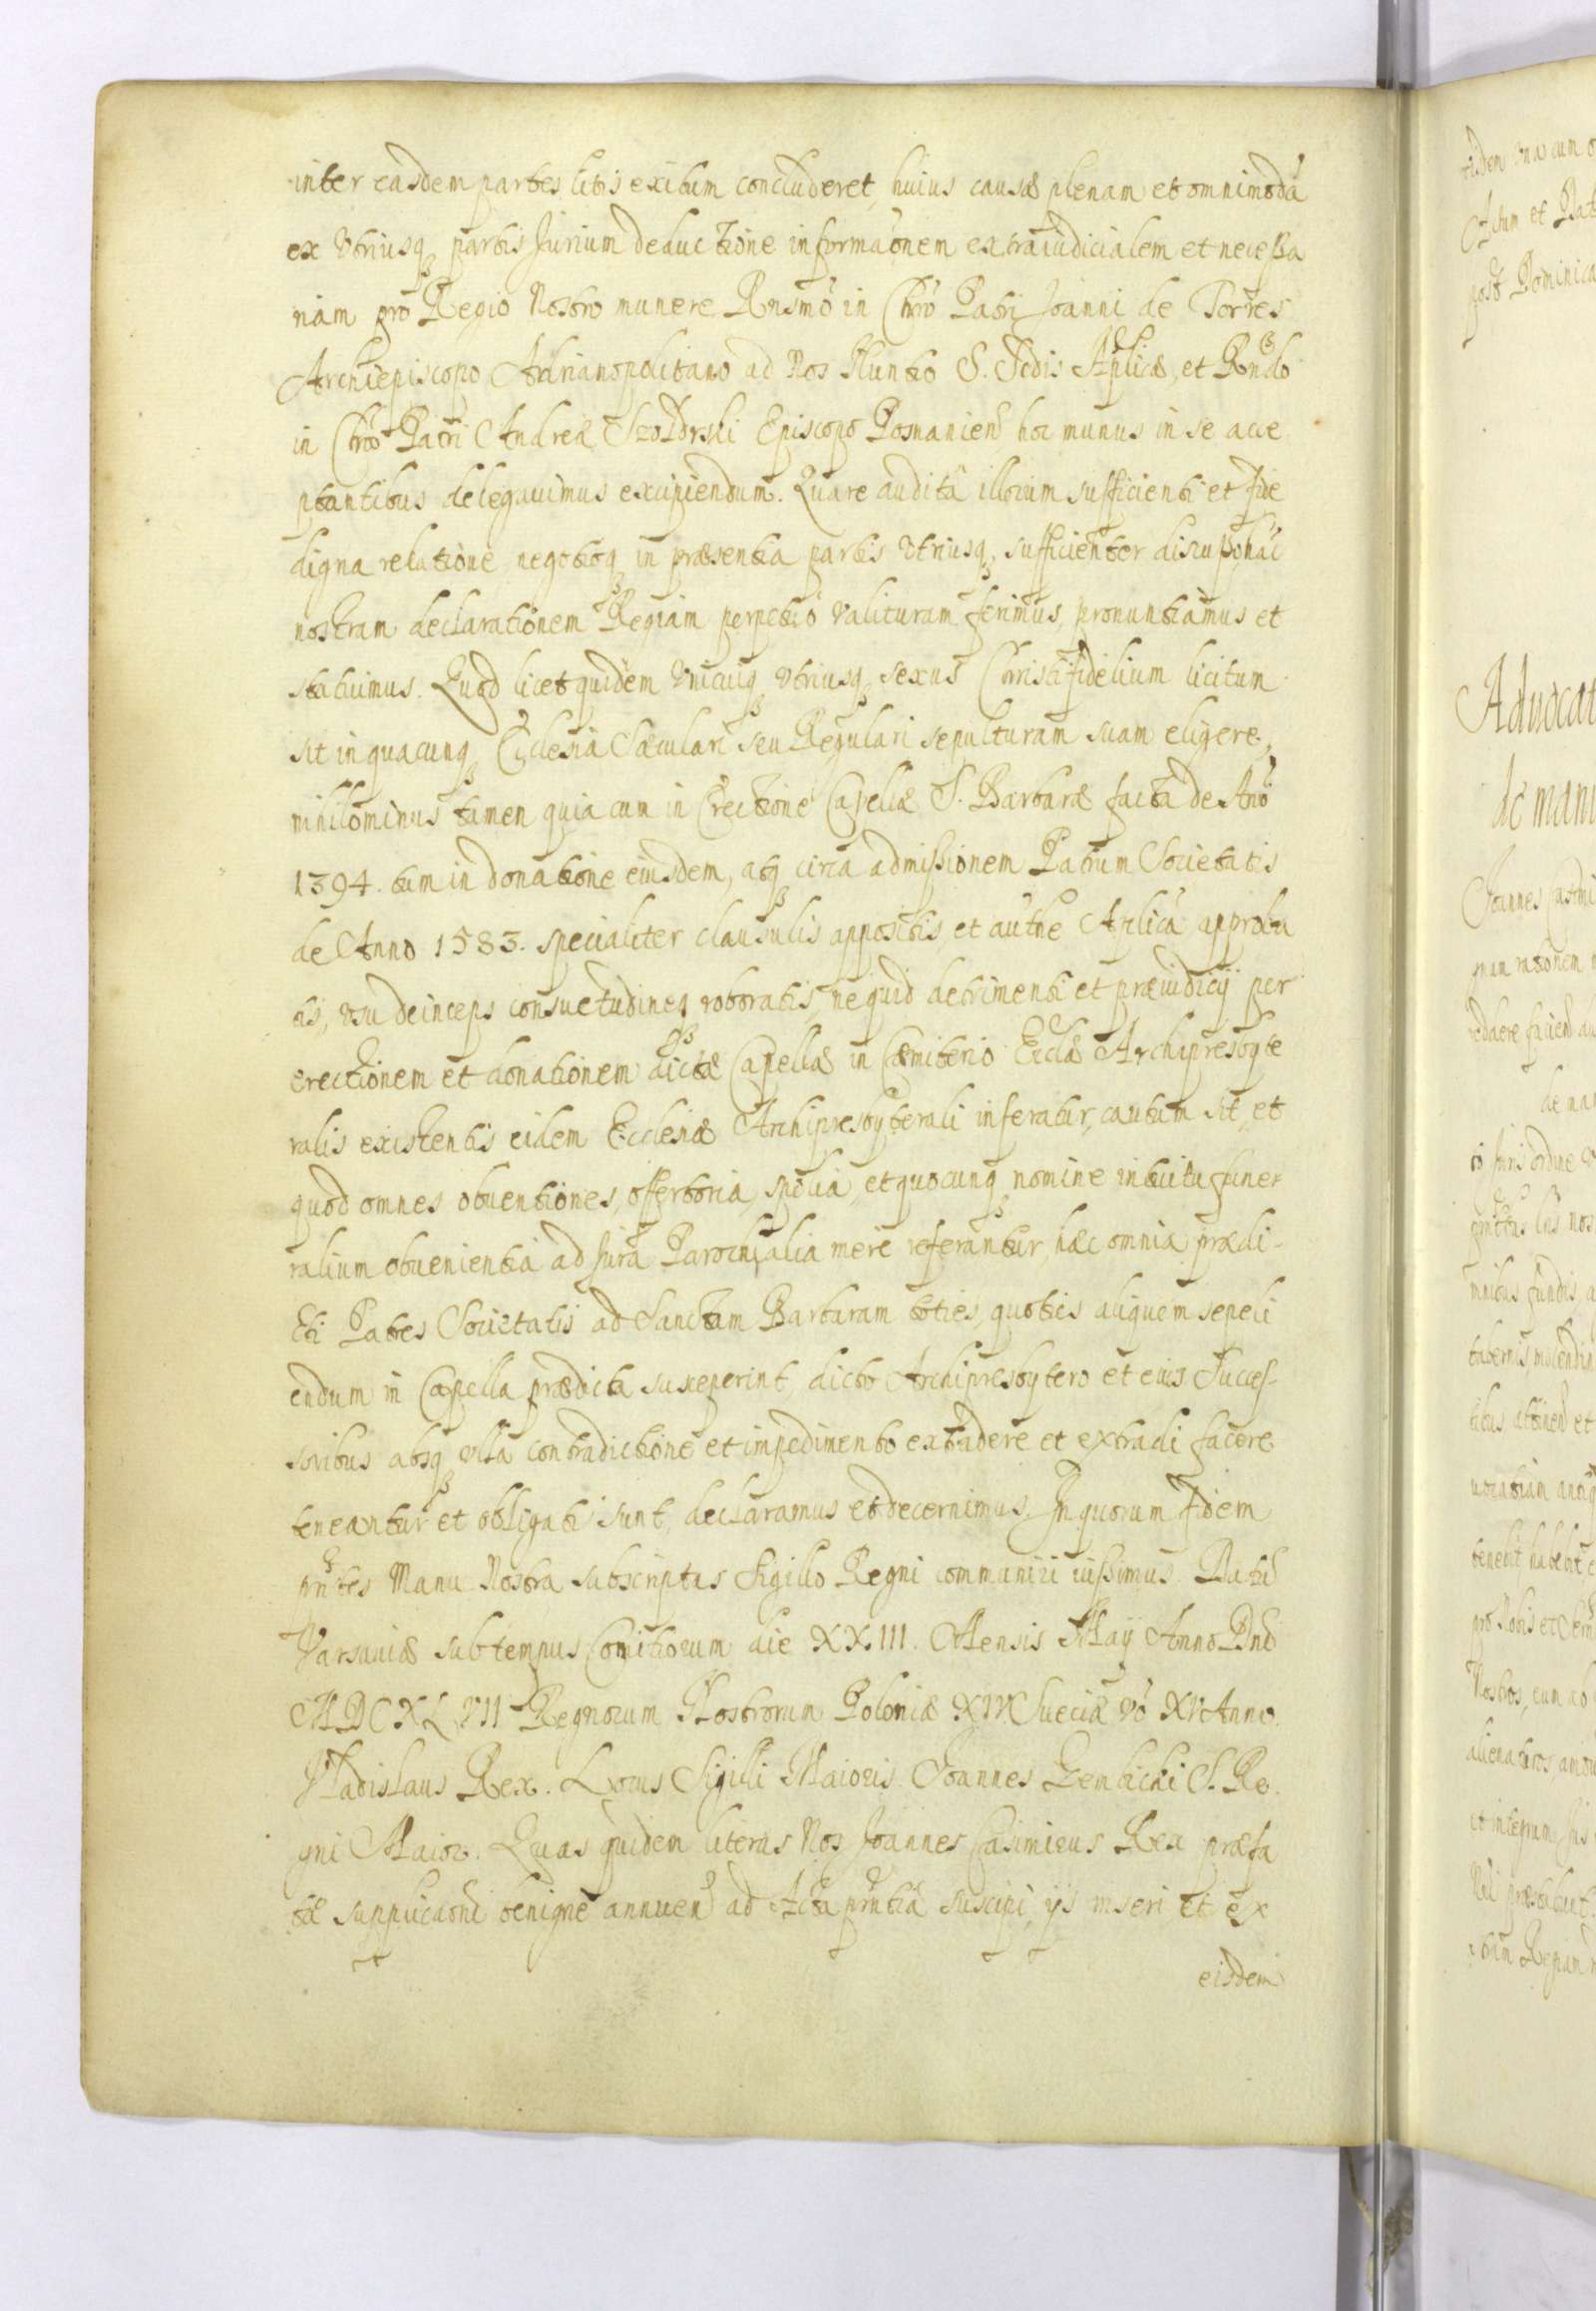 inter easdem partes litis exitum concluderet, huius causæ plenam et omnimodã
ex Vtriusq; partis Jurium deductione informãonem extraiudicialem et necessa
riam pro Regio Nostro munere Rnsmõ in Chrõ Patri Joanni de Torres
Archiepiscopo Adrianopolitano ad Nos Nuntio S. Sedis Aplicæ, et Rndo
in Chrõ Patri Andreæ Szoldrski Episcopo Posnanien̄ hoc munus in se acce
ptantibus delegauimus excipiendum. Quare auditâ illorum sufficienti et fide
digna relatione negotioq; in præsentia partis Vtriusq; sufficienter discusso hãc
nostram declarationem Regiam perpetuò valituram ferimus, pronuntiamus et
statuimus. Quod licet quidem Vnicuiq; vtriusq; sexus Christifidelium licitum
sit in quacunq; Ecclesia Sæculari seu Regulari sepulturam suam eligere,
nihilominus tamen quia cum in Erectione Capellæ S. Barbaræ facta de Anō
1394. tum in donatione eiusdem, atq; circa admissionem Patrum Societatis
de Anno 1583. specialiter clausulis appositis, et authe Aplicâ approba
tis, vsu deinceps consuetudineq; roboratis, ne quid detrimenti et præiudicij per
erectionem et donationem dictæ Capellæ in Cæmiterio Ecclæ Archipresbyte
ralis existentis eidem Ecclesiæ Archipresbyterali inferatur, cautum sit, et
quod omnes obuentiones, offertoria, spolia, et quocunq; nomine intuitu funer
ralium obuenientia ad Jura Parochialia merè referantur, hæc omnia prædi-
cti Patres Societatis ad Sanctam Barbaram toties, quoties aliquem sepeli
endum in Capella prædicta susceperint, dicto Archipresbytero et eius Succes-
soribus absq; vlla contradictione et impedimento extradere et extradi facere
teneantur et obligati sunt, declaramus et decernimus. In quorum fidem
pñtes Manu Nostra subscriptas Sigillo Regni communiri iussimus. Datũ
Varsauiæ sub tempus Comitiorum die XXIII. Mensis Maÿ Anno Dnĩ
MDCXLVII Regnorum Nostrorum Poloniæ XIV Sueciæ vō XV Anno.
Vladislaus Rex. Locus Sigilli Maioris. Joannes Gembicki S. Re.
gni Maior. Quas quidem literas Nos Joannes Casimirus Rex præfa
tæ supplicãoni benignè annuen̄ ad Acta pñtia suscipi, ijs inseri et ex
eisdem